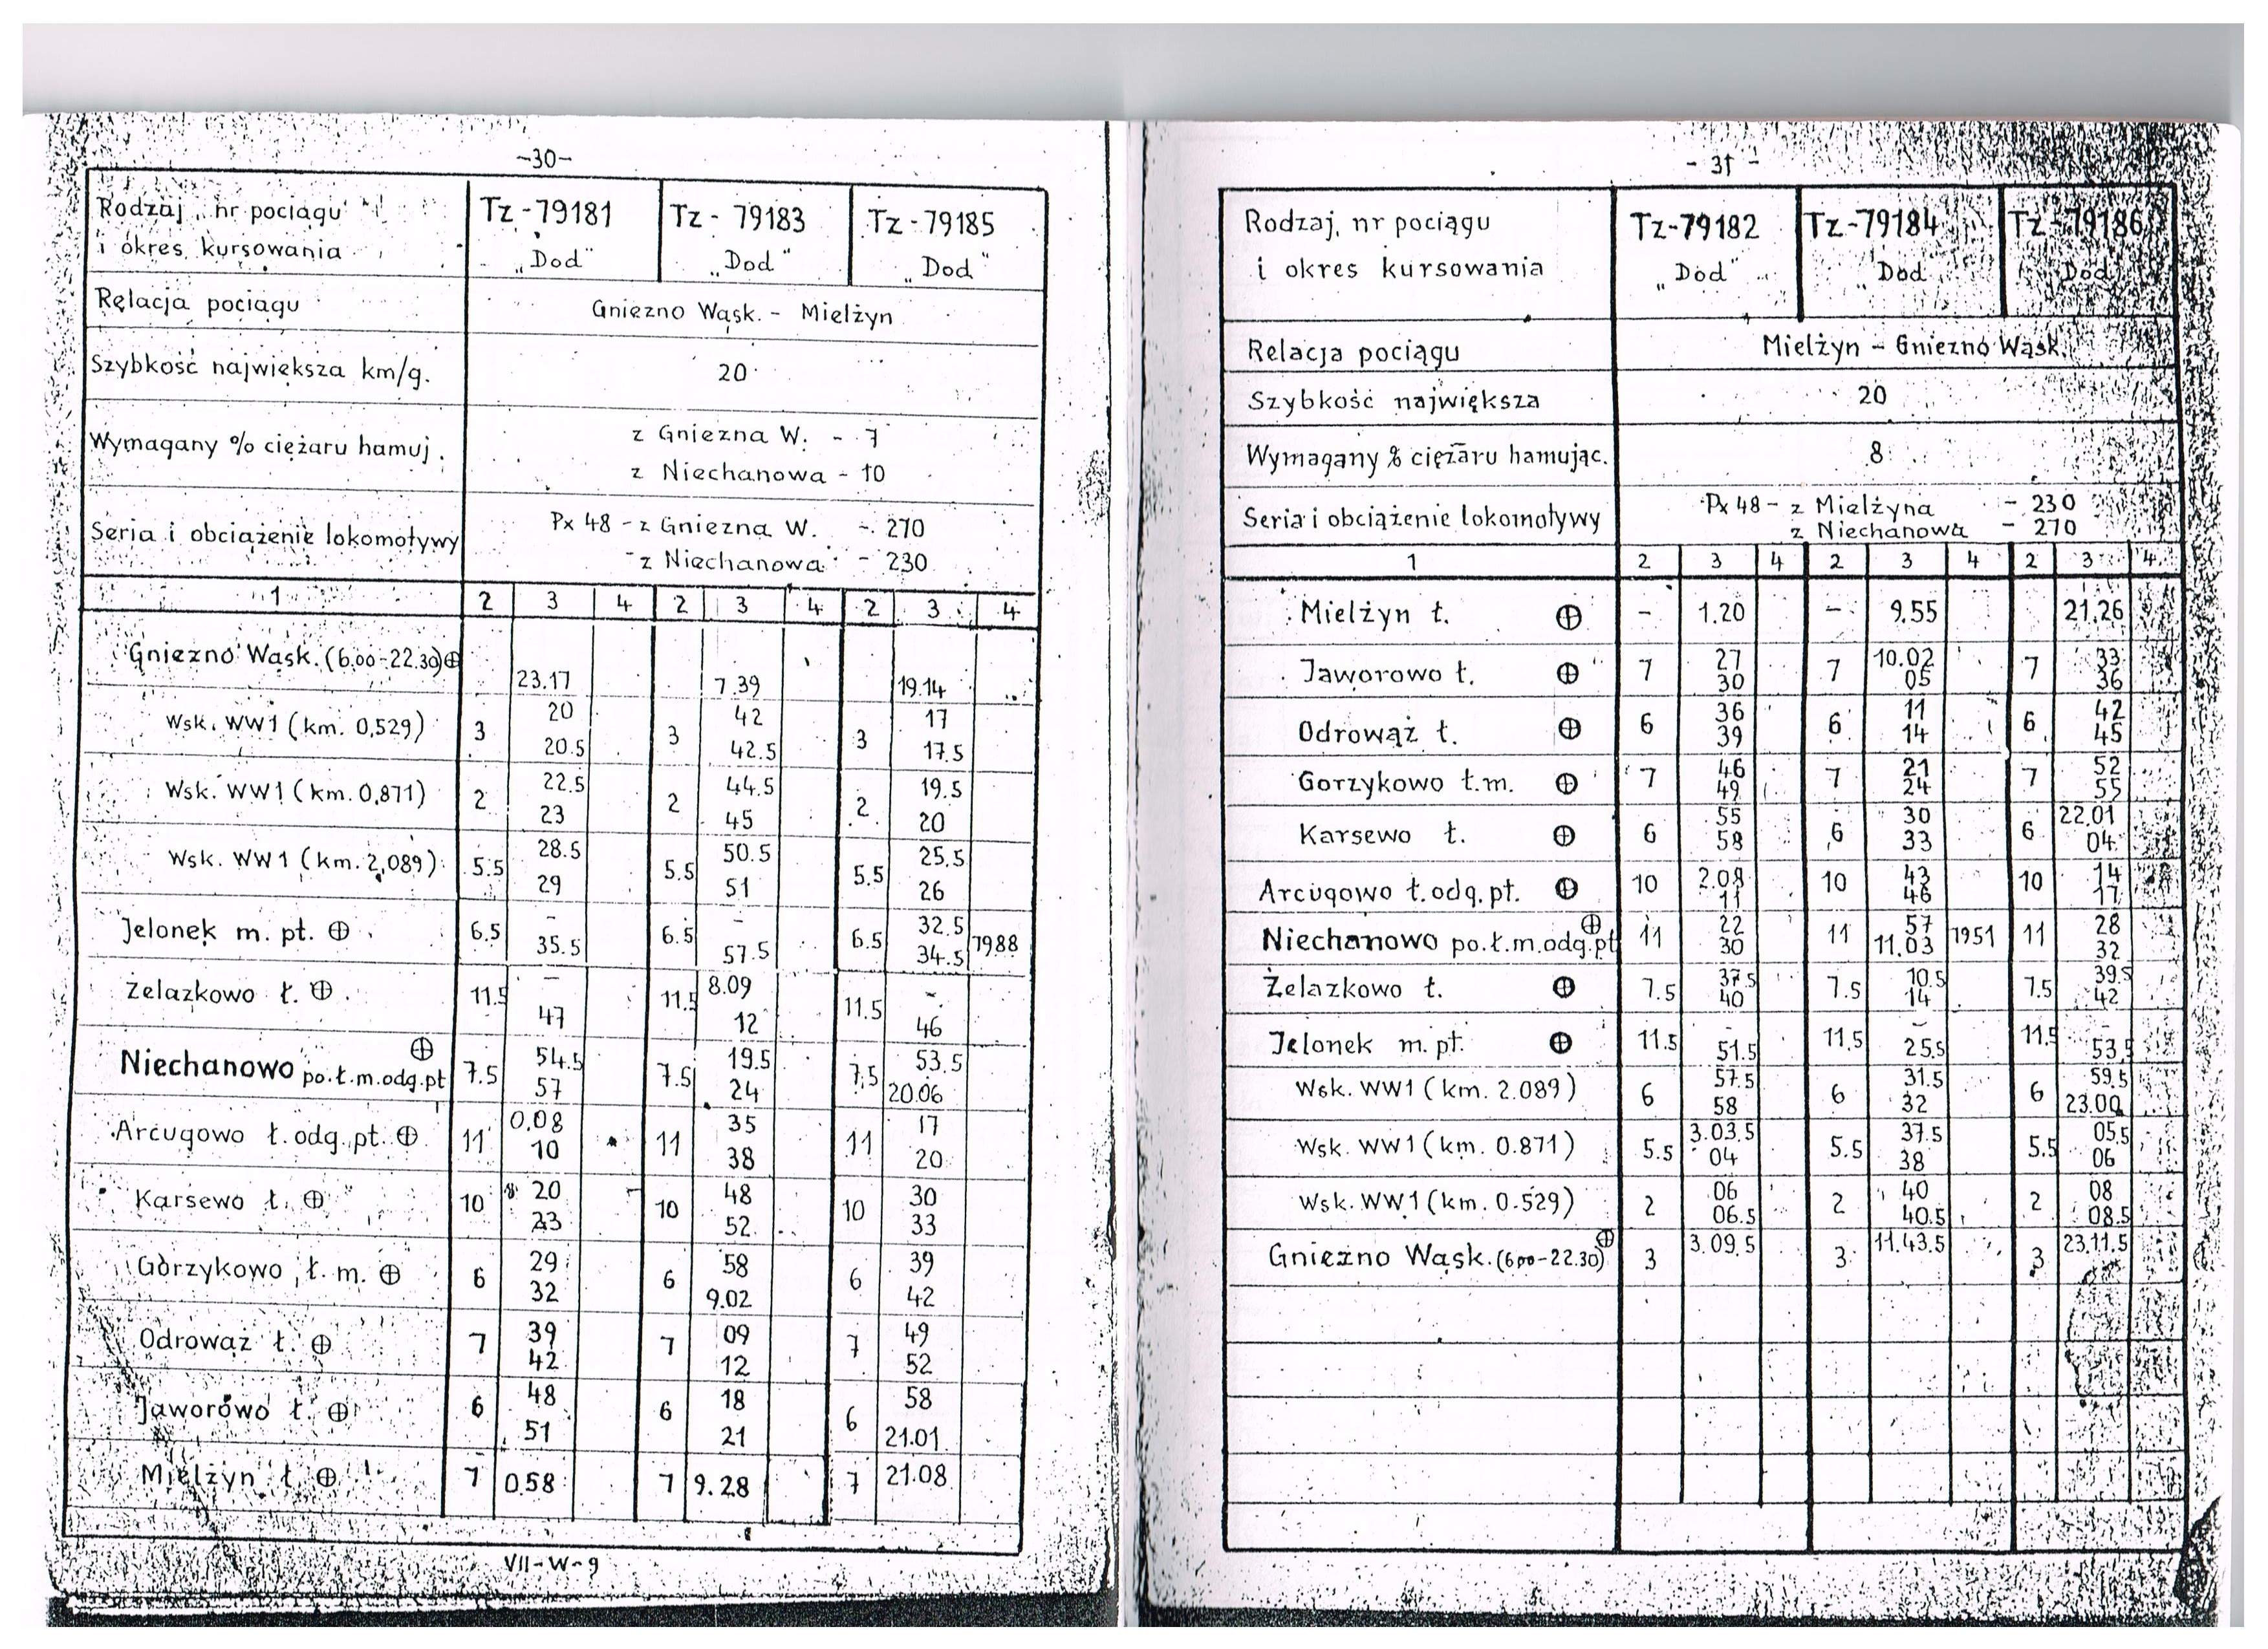 -30-
Rodzaj, nr pociągu
i okres kursowania
Tz-79181
„Dod"
Tz - 79183
„Dod"
Tz-79185
„Dod"
Relacja pociągu
Gniezno Wąsk. - Mielżyn
Szybkość największa km/g.
20
Wymagany % ciężaru hamuj.
z Gniezna W. - 7
z Niechanowa - 10
Seria i obciążenie lokomotywy
Px 48 - z Gniezna W. - 270
- z Niechanowa - 230
1 2 3 4 2 3 4 2 3 4
Gniezno Wąsk. (6.00-22.30) ⊕ 23.17 7.39 19.14
Wsk. WW1 (km. 0,529) 3 20 3 42 3 17
20.5 42.5 17.5
Wsk. WW1 (km. 0,871) 2 22.5 2 44.5 2 19.5
23 45 20
Wsk. WW1 (km. 2,089) 5.5 28.5 5.5 50.5 5.5 25.5
29 51 26
Jelonek m. pt. ⊕ 6.5 - 6.5 - 6.5 32.5 7988
35.5 57.5 34.5
Żelazkowo ł. ⊕ 11.5 - 11.5 8.09 11.5 -
47 12 46
Niechanowo po.ł.m.odg.pt ⊕ 7.5 54.5 7.5 19.5 7.5 53.5
57 24 20.06
Arcugowo ł. odg. pt. ⊕ 11 0.08 11 35 11 17
10 38 20
Karsewo ł. ⊕ 10 20 10 48 10 30
23 52 33
Gorzykowo ł. m. ⊕ 6 29 6 58 6 39
32 9.02 42
Odrowąż ł. ⊕ 7 39 7 09 7 49
42 12 52
Jaworowo ł. ⊕ 6 48 6 18 6 58
51 21 21.01
Mielżyn ł. ⊕ 7 0.58 7 9.28 7 21.08
VII-W-9
- 31 -
Rodzaj, nr pociągu
i okres kursowania
Tz-79182
„Dod"
Tz-79184
„Dod
Tz-79186
Dod
Relacja pociągu
Mielżyn - Gniezno Wąsk.
Szybkość największa
20
Wymagany % ciężaru hamując.
8
Seria i obciążenie lokomotywy
Px 48 - z Mielżyna - 230
z Niechanowa - 270
1 2 3 4 2 3 4 2 3 4
Mielżyn ł. ⊕ - 1.20 - 9.55 21.26
Jaworowo ł. ⊕ 7 27 7 10.02 7 33
30 05 36
Odrowąż ł. ⊕ 6 36 6 11 6 42
39 14 45
Gorzykowo ł.m. ⊕ 7 46 7 21 7 52
49 24 55
Karsewo ł. ⊕ 6 55 6 30 6 22.01
58 33 04
Arcugowo ł. odg. pt. ⊕ 10 2.08 10 43 10 14
11 46 17
Niechanowo po.ł.m.odg.pt ⊕ 11 22 11 57 7951 11 28
30 11.03 32
Żelazkowo ł. ⊕ 7.5 37.5 7.5 10.5 7.5 39.5
40 14 42
Jelonek m. pt. ⊕ 11.5 - 11.5 - 11.5 -
51.5 25.5 53.5
Wsk. WW1 (km. 2.089) 6 57.5 6 31.5 6 59.5
58 32 23.00
Wsk. WW1 (km. 0.871) 5.5 3.03.5 5.5 37.5 5.5 05.5
04 38 06
Wsk. WW1 (km. 0.529) 2 06 2 40 2 08
06.5 40.5 08.5
Gniezno Wąsk. (6.00-22.30) ⊕ 3 3.09.5 3 11.43.5 3 23.11.5